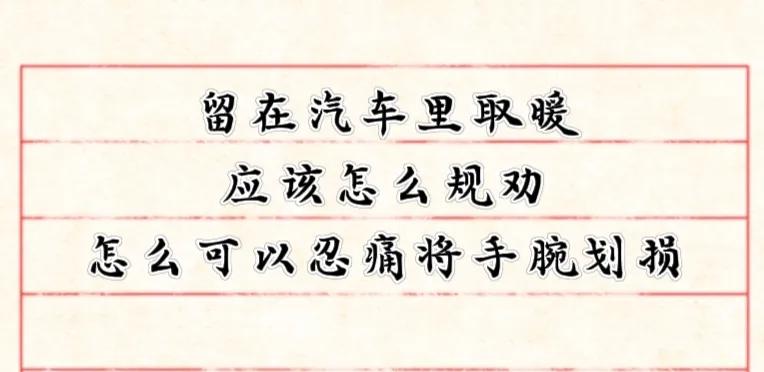 留在汽车里取暖
应该怎么规劝
怎么可以忍痛将手腕划损